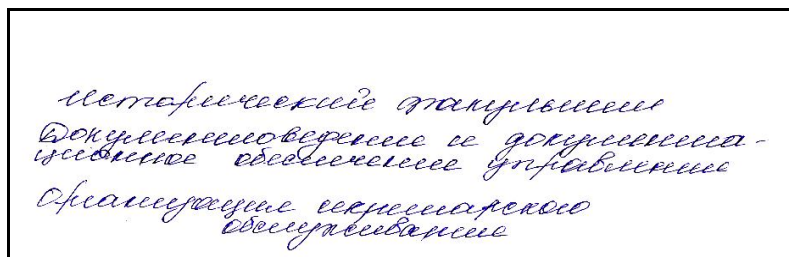 исторический факультет
Документоведение и документа-
ционное обеспечение управления
Организация секретарского
обслуживания